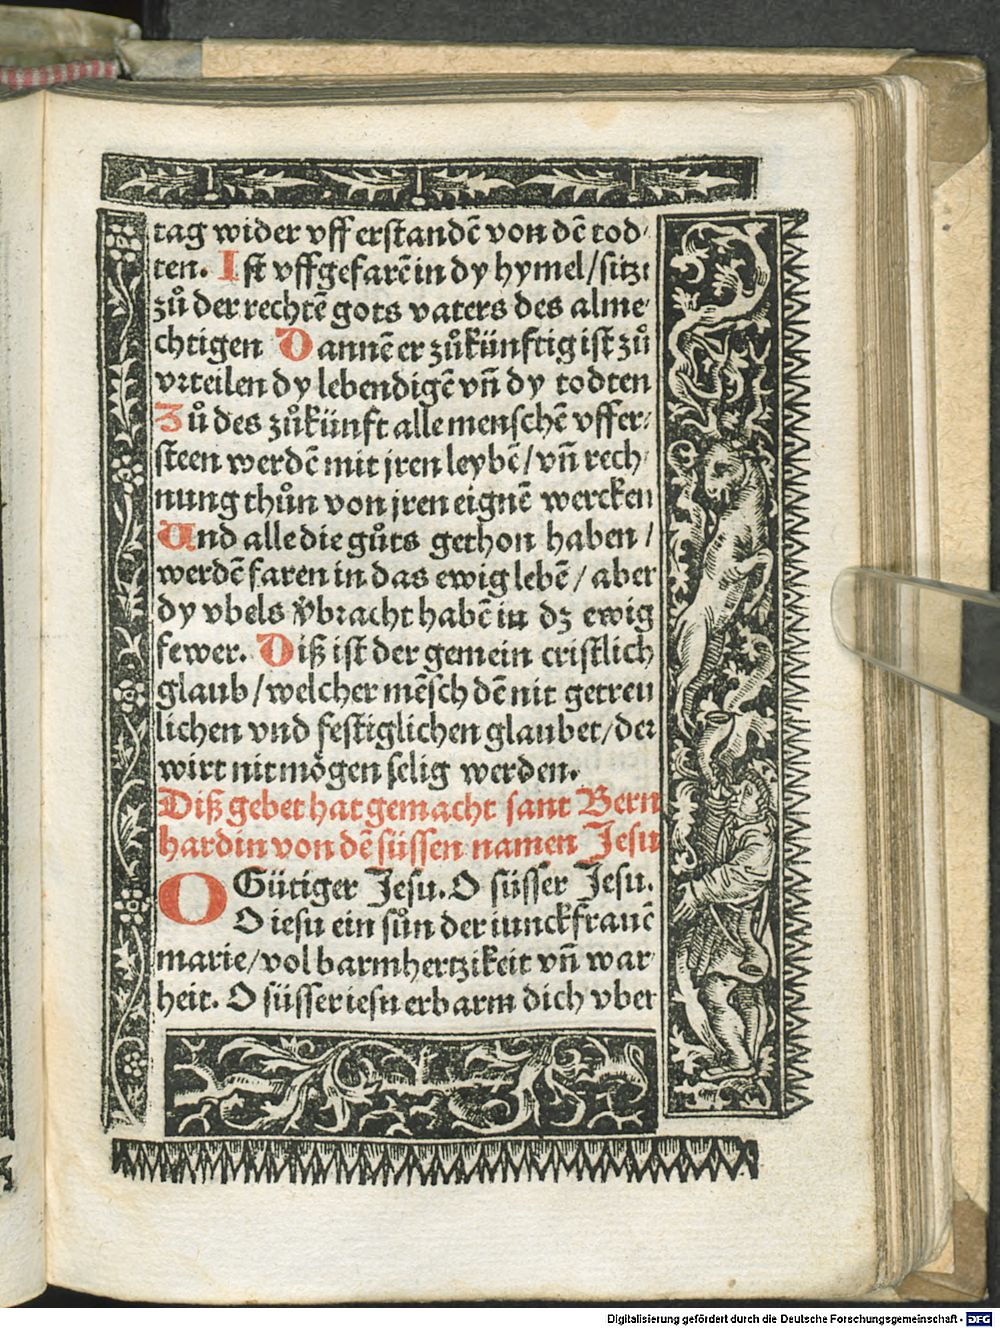 tag wider vff erstandē von dē tod⸗
ten. Ist vffgefarē in dy hymel/sitzt
zů der rechtē gots vaters des alme⸗
chtigen Dannē er zůkünftig ist zů
vꝛteilen dy lebendigē vñ dy todten
Zů des zůkünft alle menschē vffer⸗
steen werdē mit jren leybē/vñ rech⸗
nung thůn von jren eignē wercken
Und alle die gůts gethon haben/
werdē faren in das ewig lebē/aber
dy vbels v̈bracht habē in dz ewig
fewer. Diß ist der gemein cristlich
glaub/welcher mēsch dē nit getreu
lichen vnd festiglichen glaubet/der
wirt nit mögen selig werden.
Diß gebet hat gemacht sant Bern
hardin von dē süssen namen Jesu
O Gütiger Jesu. O süsser Jesu.
O iesu ein sůn der iunckfrauē
marie/vol barmhertzikeit vñ war⸗
heit. O süsser iesu erbarm dich vber
Digitalisierung gefördert durch die Deutsche Forschungsgemeinschaft - DFG